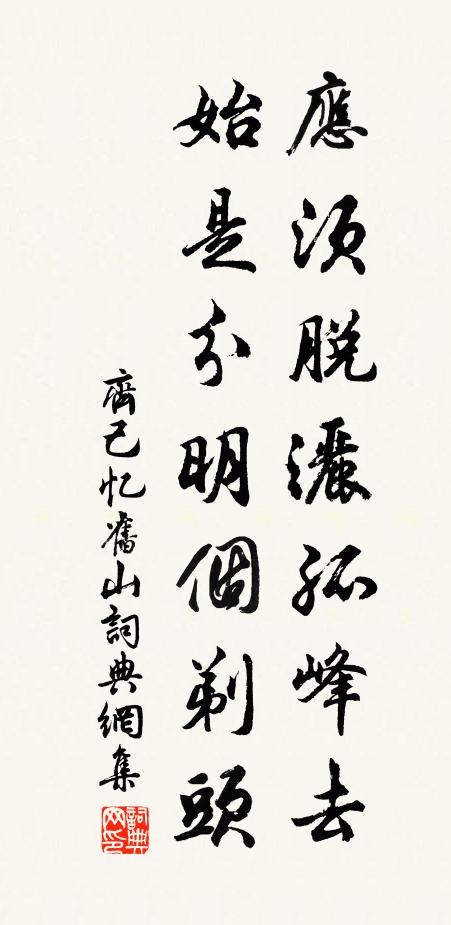 應須脫灑孤峰去
始是分明個剃頭
齊己忆舊山詞典網集
詞典网印